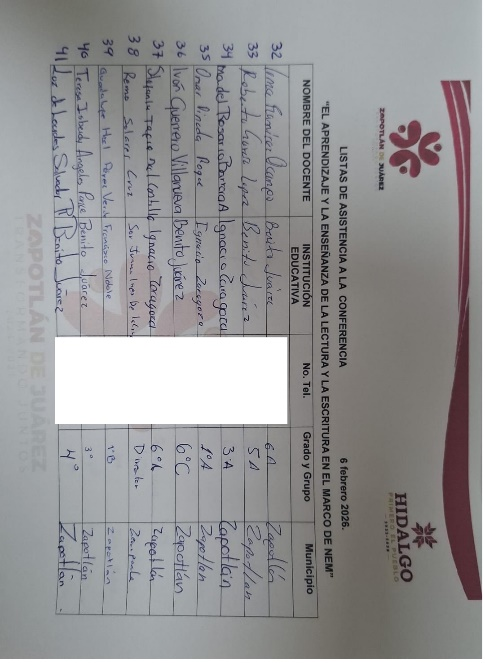 ZAPOTLÁN DE JUÁREZ
HIDALGO
PRIMERO EL PUEBLO
LISTAS DE ASISTENCIA A LA CONFERENCIA
6 febrero 2026.
"EL APRENDIZAJE Y LA ENSEÑANZA DE LA LECTURA Y LA ESCRITURA EN EL MARCO DE NEM"
NOMBRE DEL DOCENTE INSTITUCIÓN EDUCATIVA No. Tel. Grado y Grupo Municipio
32 Ramírez Ocampo Benito Juárez 6A Zapotlán
33 Roberto García López Benito Juárez 5A Zapotlán
34 Ma del Rosario A Ignacio Zaragoza 3.A Zapotlán
35 Omar Pineda Roque Ignacio Zaragoza 1°A Zapotlán
36 Ivón Guerrero Villanueva Benito Juárez 6°C Zapotlán
37 del Castillo Ignacio Zaragoza 6°A Zapotlán
38 Solares Cruz Sor Juana Inés De la Cruz Director
39 Guadalupe 1°B Zapotlán
40 Teresa Angeles Ponce Benito Juárez 3° Zapotlán
41 Luz de Lourdes Benito Juárez 4° Zapotlán.
ZAPOTLÁN DE JUÁREZ